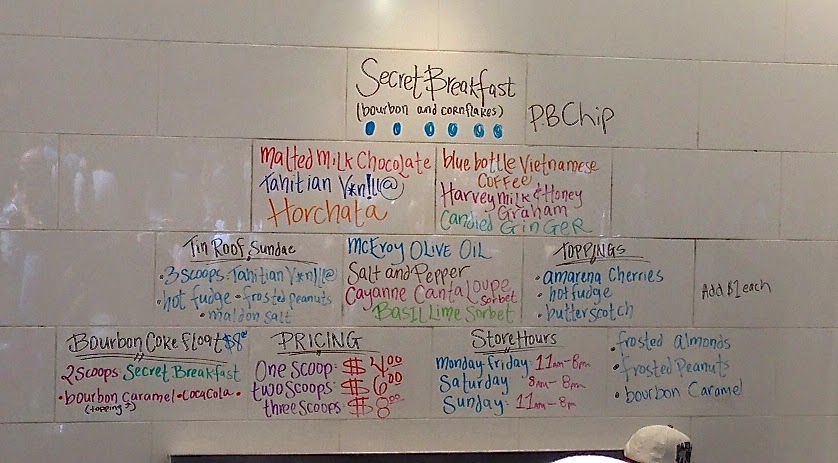 Secret Breakfast
(bourbon and cornflakes)
P.B Chip
Malted Milk Chocolate
Tahitian V*n!ll@
Horchata
blue bottle Vietnamese
Coffee
Harvey Milk & Honey
Graham
Candied Ginger
Tin Roof Sundae
• 3 scoops Tahitian V*n!ll@
• hot fudge • frosted peanuts
• maldon salt
McEvoy OLIVE OIL
Salt and Pepper
Cayanne Cantaloupe
Sorbet
Basil Lime Sorbet
TOPPINGS
• amarena cherries
• hot fudge
• butterscotch
Add $1 each
• frosted almonds
• frosted Peanuts
• bourbon Caramel
Bourbon Coke Float $8
2 Scoops Secret Breakfast
• bourbon caramel • CocaCola •
PRICING
One scoop: $4.00
two scoops: $6.00
three scoops $8.00
Store Hours
Monday Friday: 11am-8pm
Saturday 8am-8pm
Sunday: 11am-8pm